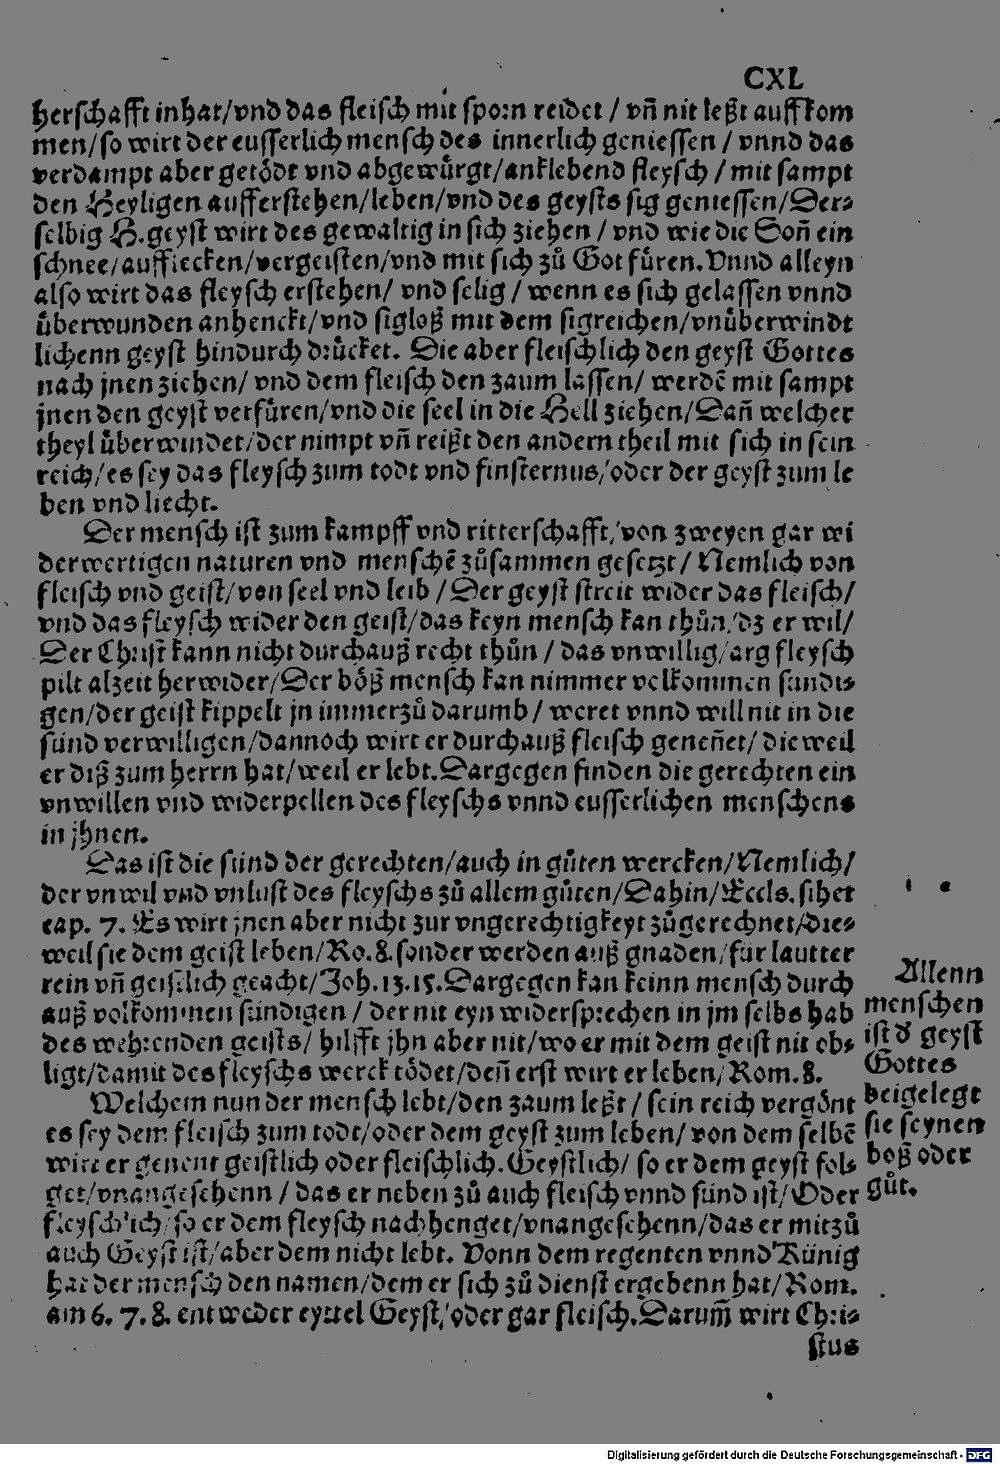 CXL
herschafft inhat/vnd das fleisch mit sporn reidet / vñ nit leßt auffkom
men/so wirt der eusserlich mensch des innerlich geniessen / vnnd das
verdampt aber getödt vnd abgewürgt/anklebend fleysch / mit sampt
den Heyligen aufferstehen/leben/vnd des geysts sig geniessen/Der-
selbig H.geyst wirt des gewaltig in sich ziehen / vnd wie die Soñ ein
schnee/auffziecken/vergeisten/vnd mit sich zů Got füren.Vnnd alleyn
also wirt das fleysch erstehen/ vnd selig / wenn es sich gelassen vnnd
überwunden anhenckt/vnd sigloß mit dem sigreichen/vnüberwindt
lichenn geyst hindurch drücket. Die aber fleischlich den geyst Gottes
nach jnen ziehen/ vnd dem fleisch den zaum lassen/ werdẽ mit sampt
jnen den geyst verfüren/vnd die seel in die Hell ziehen/Dañ welcher
theyl überwindet/der nimpt vñ reißt den andern theil mit sich in sein
reich/es sey das fleysch zum todt vnd finsternus/oder der geyst zum le
ben vnd liecht.
Der mensch ist zum kampff vnd ritterschafft/von zweyen gar wi
derwertigen naturen vnd menschẽ zůsammen gesetzt/ Nemlich von
fleisch vnd geist/von seel vnd leib /Der geyst streit wider das fleisch/
vnd das fleysch wider den geist/das keyn mensch kan thůn/dz er wil/
Der Christ kann nicht durchauß recht thůn / das vnwillig/arg fleysch
pilt alzeit herwider/Der böß mensch kan nimmer volkommen sündi-
gen/der geist kippelt jn immerzů darumb / weret vnnd will nit in die
sünd verwilligen/dannoch wirt er durchauß fleisch geneñet/ die weil
er diß zum herrn hat/weil er lebt.Dargegen finden die gerechten ein
vnwillen vnd widerpellen des fleyschs vnnd eusserlichen menschens
in jhnen.
Das ist die sünd der gerechten/auch in gůten wercken/Nemlich/
der vnwil vnd vnlust des fleyschs zů allem gůten/Dahin/Eccls.sihet
cap. 7. Es wirt jnen aber nicht zur vngerechtigkeyt zůgerechnet/die-
weil sie dem geist leben/Ro.8.sonder werden auß gnaden/für lautter
rein vñ geistlich geacht/Joh.13.15.Dargegen kan keinn mensch durch
auß volkommen sündigen / der nit eyn widersprechen in jm selbs hab
des wehrenden geists/ hilfft jhn aber nit/wo er mit dem geist nit ob-
ligt/damit des fleyschs werck tödet/deñ erst wirt er leben/Rom.8.
Welchem nun der mensch lebt/den zaum leßt / sein reich vergönt
es sey dem fleisch zum todt/oder dem geyst zum leben/ von dem selbẽ
wirt er genent geistlich oder fleischlich.Geystlich/ so er dem geyst fol-
get/vnangesehenn / das er neben zů auch fleisch vnnd sünd ist/Oder
fleyschlich/so er dem fleysch nachhenget/vnangesehenn/das er mitzů
auch Geyst ist/aber dem nicht lebt. Vonn dem regenten vnnd Künig
hat der mensch den namen/dem er sich zů dienst ergebenn hat/Rom.
am 6. 7. 8. entweder eyttel Geyst/oder gar fleisch.Darum̃ wirt Chri-
stus
Allenn
menschen
ist d geyst
Gottes
beigelegt
sie seynen
boß oder
gůt.
Digitalisierung gefördert durch die Deutsche Forschungsgemeinschaft - DFG